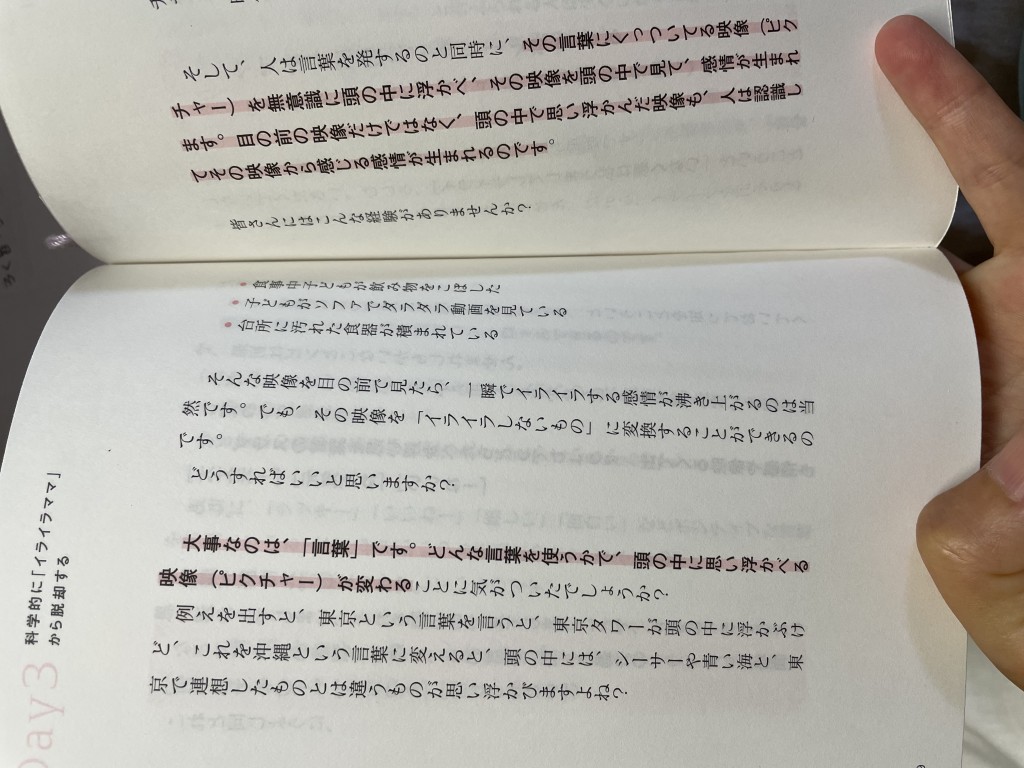 そして、人は言葉を発するのと同時に、その言葉にくっついてる映像（ピク
チャー）を無意識に頭の中に浮かべ、その映像を頭の中で見て、感情が生まれ
ます。目の前の映像だけではなく、頭の中で思い浮かんだ映像も、人は認識し
てその映像から感じる感情が生まれるのです。
皆さんにはこんな経験がありませんか？
●食事中子どもが飲み物をこぼした
●子どもがソファでダラダラ動画を見ている
●台所に汚れた食器が積まれている
そんな映像を目の前で見たら、一瞬でイライラする感情が沸き上がるのは当
然です。でも、その映像を「イライラしないもの」に変換することができるの
です。
どうすればいいと思いますか？
大事なのは、「言葉」です。どんな言葉を使うかで、頭の中に思い浮かべる
映像（ピクチャー）が変わることに気がついたでしょうか？
例えを出すと、東京という言葉を言うと、東京タワーが頭の中に浮かぶけ
ど、これを沖縄という言葉に変えると、頭の中には、シーサーや青い海と、東
京で連想したものとは違うものが思い浮かびますよね？
Day3
科学的に「イライラママ」
から脱却する